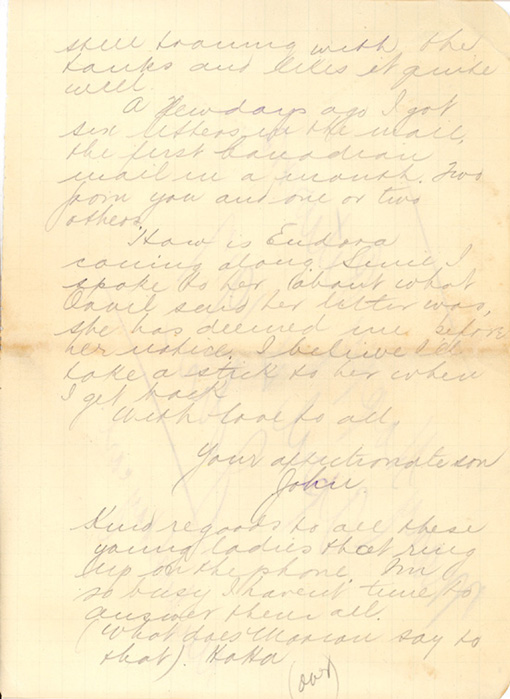 still training with the
tanks and likes it quite
well.
A few days ago I got
six letters in the mail,
the first Canadian
mail in a month. Two
from you and one or two
others.
How is Eudora
coming along. Since I
spoke to her about what
Orvil said her letter was,
she has deemed me before
her notice. I believe I'll
take a stick to her when
I get back.
With love to all,
Your affectionate son
John.
Kind regards to all these
young ladies that ring
up on the phone. I'm
so busy I haven't time to
answer them all.
(What does Marion say to
that). HaHa
(over)